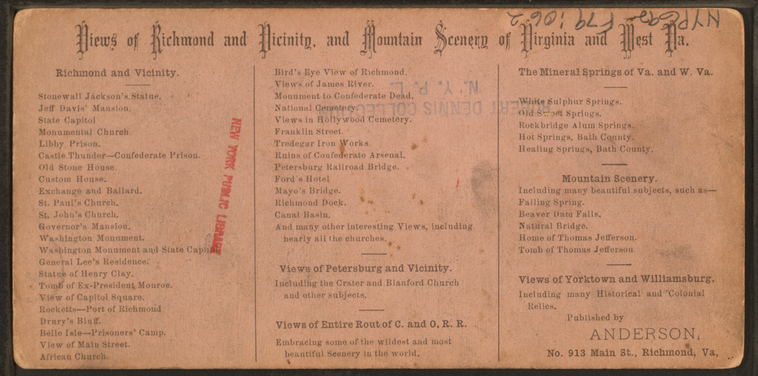 Views of Richmond and Vicinity, and Mountain Scenery of Virginia and West Va.
Richmond and Vicinity.
Stonewall Jackson's Statue.
Jeff Davis' Mansion.
State Capitol
Monumental Church
Libby Prison.
Castle Thunder—Confederate Prison.
Old Stone House
Custom House.
Exchange and Ballard.
St. Paul's Church.
St. John's Church.
Governor's Mansion.
Washington Monument.
Washington Monument and State Capitol
General Lee's Residence.
Statue of Henry Clay.
Tomb of Ex-President Monroe.
View of Capitol Square.
Rocketts—Port of Richmond
Drury's Bluff.
Belle Isle—Prisoners' Camp.
View of Main Street.
African Church.
NEW YORK PUBLIC LIBRARY
Bird's Eye View of Richmond.
Views of James River.
Monument to Confederate Dead.
National Cemetery.
Views in Hollywood Cemetery.
Franklin Street.
Tredegar Iron Works.
Ruins of Confederate Arsenal.
Petersburg Railroad Bridge.
Ford's Hotel
Mayo's Bridge.
Richmond Dock.
Canal Basin.
And many other interesting Views, including
nearly all the churches.
Views of Petersburg and Vicinity.
Including the Crater and Blanford Church
and other subjects.
Views of Entire Rout of C. and O. R. R.
Embracing some of the wildest and most
beautiful Scenery in the world.
ROBERT DENNIS COLLECTION
N. Y. P. L.
The Mineral Springs of Va. and W. Va.
White Sulphur Springs.
Old Sweet Springs.
Rockbridge Alum Springs.
Hot Springs, Bath County.
Healing Springs, Bath County.
Mountain Scenery.
Including many beautiful subjects, such as—
Falling Spring.
Beaver Dam Falls.
Natural Bridge.
Home of Thomas Jefferson.
Tomb of Thomas Jefferson
Views of Yorktown and Williamsburg.
Including many Historical and Colonial
Relics.
Published by
ANDERSON,
No. 913 Main St., Richmond, Va,